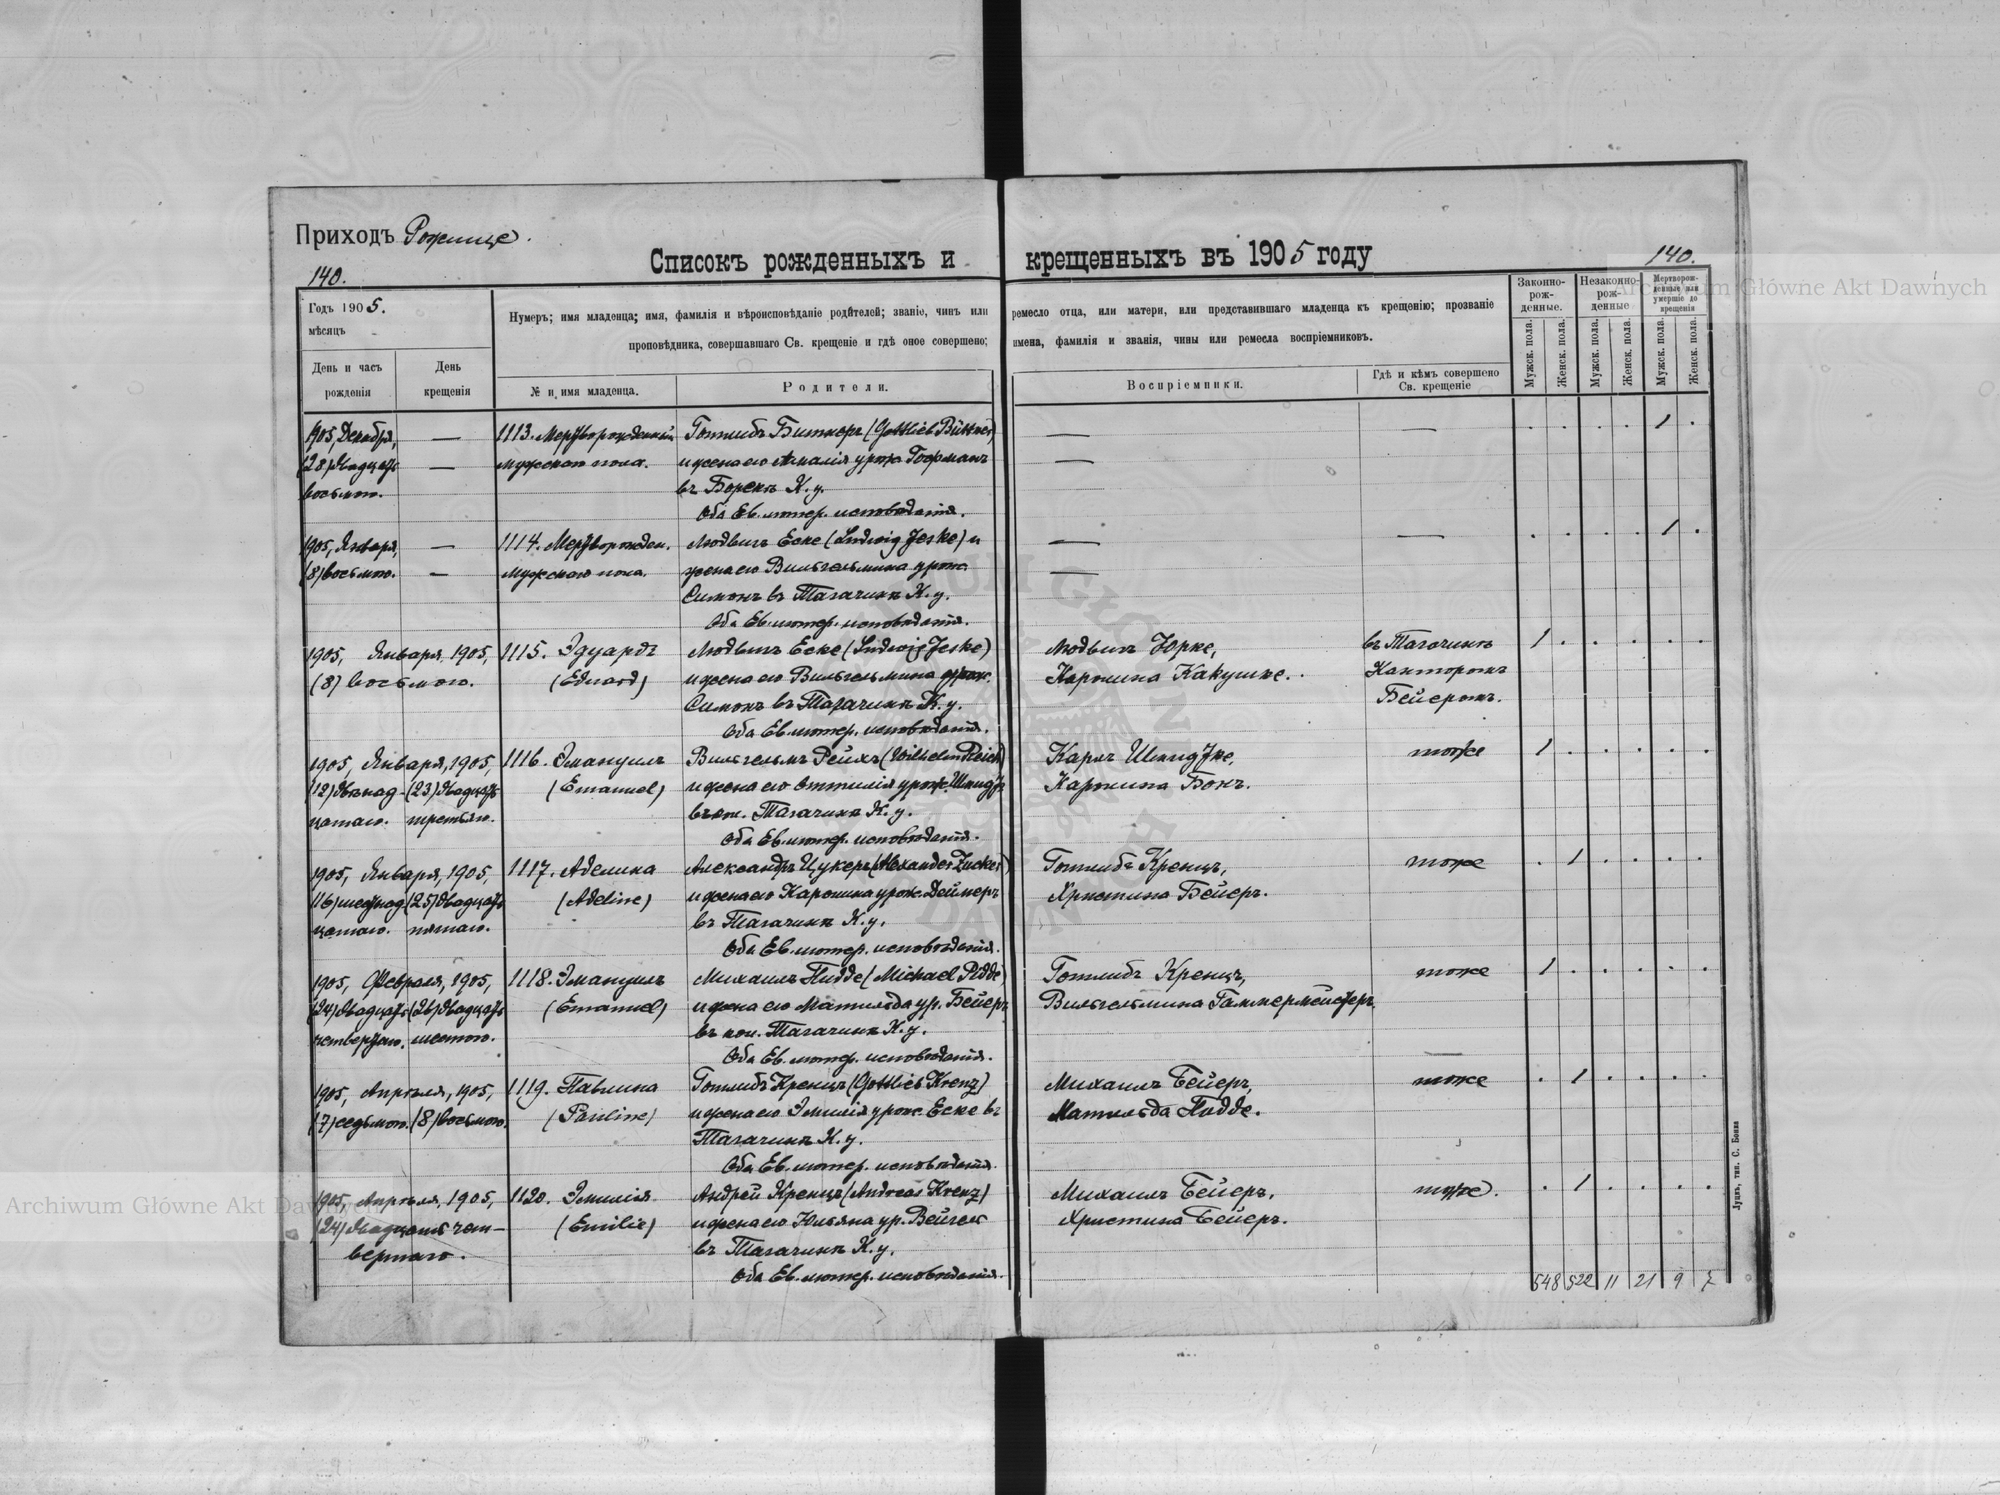 Приходъ Рожище.
Списокъ рожденныхъ и крещенныхъ въ 1905 году
140.
140.
Годъ 1905.
мѣсяцъ
День и часъ рожденія
День крещенія
Нумеръ; имя младенца; имя, фамилія и вѣроисповѣданіе родителей; званіе, чинъ или ремесло отца, или матери, или представившаго младенца къ крещенію; прозваніе
проповѣдника, совершавшаго Св. крещеніе и гдѣ оное совершено; имена, фамилія и званія, чины или ремесла воспріемниковъ.
№ и имя младенца.
Родители.
Воспріемники.
Гдѣ и кѣмъ совершено Св. крещеніе
Законно-рож-денные.
Незаконно-рож-денные
Мертворож-денные или умершіе до крещенія
Мужск. пола.
Женск. пола.
Мужск. пола.
Женск. пола.
Мужск. пола.
Женск. пола.
1905, Декабря, — 1113. Мертворожденный Готлибъ Битнеръ (Gottlieb Büttner) — — 1
(28) двадцать — мужского пола. и жена его Амалія урож. Гофманъ —
восьмого. въ Борекъ К. у.
Оба Ев. лютер. исповѣданія.
1905, Января, — 1114. Мертворожден. Людвигъ Еске (Ludwig Jeske) и — — 1
(8) восьмого. — мужского пола. жена его Вильгельмина урож. —
Симонъ въ Тагачинѣ К. у.
Оба Ев. лютер. исповѣданія.
1905, Января, 1905, 1115. Эдуардъ Людвигъ Еске (Ludwig Jeske) Людвигъ Юрке, въ Тагачинѣ 1
(8) восьмого. (Eduard) и жена его Вильгельмина урож. Каролина Какушке. Канторомъ
Симонъ въ Тагачинѣ К. у. Бейеромъ.
Оба Ев. лютер. исповѣданія.
1905, Января, 1905, 1116. Эмануилъ Вильгельмъ Рейхъ (Wilhelm Reich) Карлъ Шмидтке, тоже 1
(12) двѣнад- (23) двадцать (Emanuel) и жена его Оттилія урож. Шмидт Каролина Бокъ.
цатаго. третьяго. въ кол. Тагачинѣ К. у.
Оба Ев. лютер. исповѣданія.
1905, Января, 1905, 1117. Аделина Александръ Цукеръ (Alexander Zucker) Готлибъ Кренцъ, тоже 1
(16) шестнад (25) двадцать (Adeline) и жена его Каролина урож. Деймеръ Христина Бейеръ.
цатаго. пятаго. въ Тагачинѣ К. у.
Оба Ев. лютер. исповѣданія.
1905, Февраля, 1905, 1118. Эмануилъ Михаилъ Пидде (Michael Pidde) Готлибъ Кренцъ, тоже 1
(24) двадцать (26) двадцать (Emanuel) и жена его Матильда ур. Бейеръ Вильгельмина Гаммермейстеръ.
четвертаго. шестого. въ кол. Тагачинѣ К. у.
Оба Ев. лютер. исповѣданія.
1905, Апрѣля, 1905, 1119. Павлина Готлибъ Кренцъ (Gottlieb Krenz) Михаилъ Бейеръ, тоже 1
(7) седьмого. (8) восьмого. (Pauline) и жена его Эмилія урож. Еске въ Матильда Пидде.
Тагачинѣ К. у.
Оба Ев. лютер. исповѣданія.
1905, Апрѣля, 1905, 1120. Эмилія Андрей Кренцъ (Andreas Krenz) Михаилъ Бейеръ, тоже. 1
(24) двадцать чет- (Emilie) и жена его Юльяна ур. Вейгел Христина Бейеръ.
вертаго. въ Тагачинѣ К. у.
Оба Ев. лютер. исповѣданія.
548 522 11 21 9 7
Луцкъ, тип. С. Бокза
Archiwum Główne Akt Dawnych
Archiwum Główne Akt Dawnych